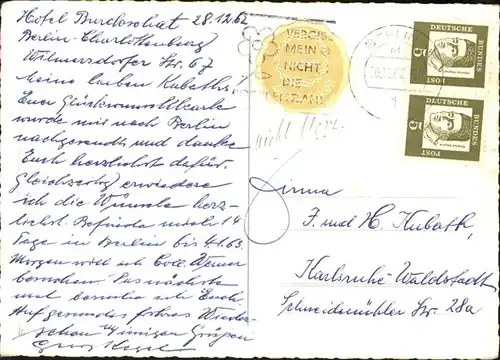 Hotel Burdeschat 28.12.62
Berlin-Charlottenburg
Wilmersdorfer Str. 67
Meine lieben Kubaths!
Eure Glückwunschkarte
wurde mir nach Berlin
nachgesandt und danke
Euch herzlichst dafür.
Gleichzeitig erwiedere
ich die Wünsche herz-
lichst. Befinde mich 14
Tage in Berlin bis 4.1.63.
Morgen will ich Coll.
besuchen.
und ich Euch.
Auf gesundes frohes Wieder-
schau innigen Grüßen
VERGIS-
MEIN
NICHT
DIE
BERLIN
1
DEUTSCHE
BUNDES
POST
5
DEUTSCHE
BUNDES
POST
5
Firma
F. und H. Kubath
Karlsruhe-Waldstadt
Schneidemühler Str. 28a